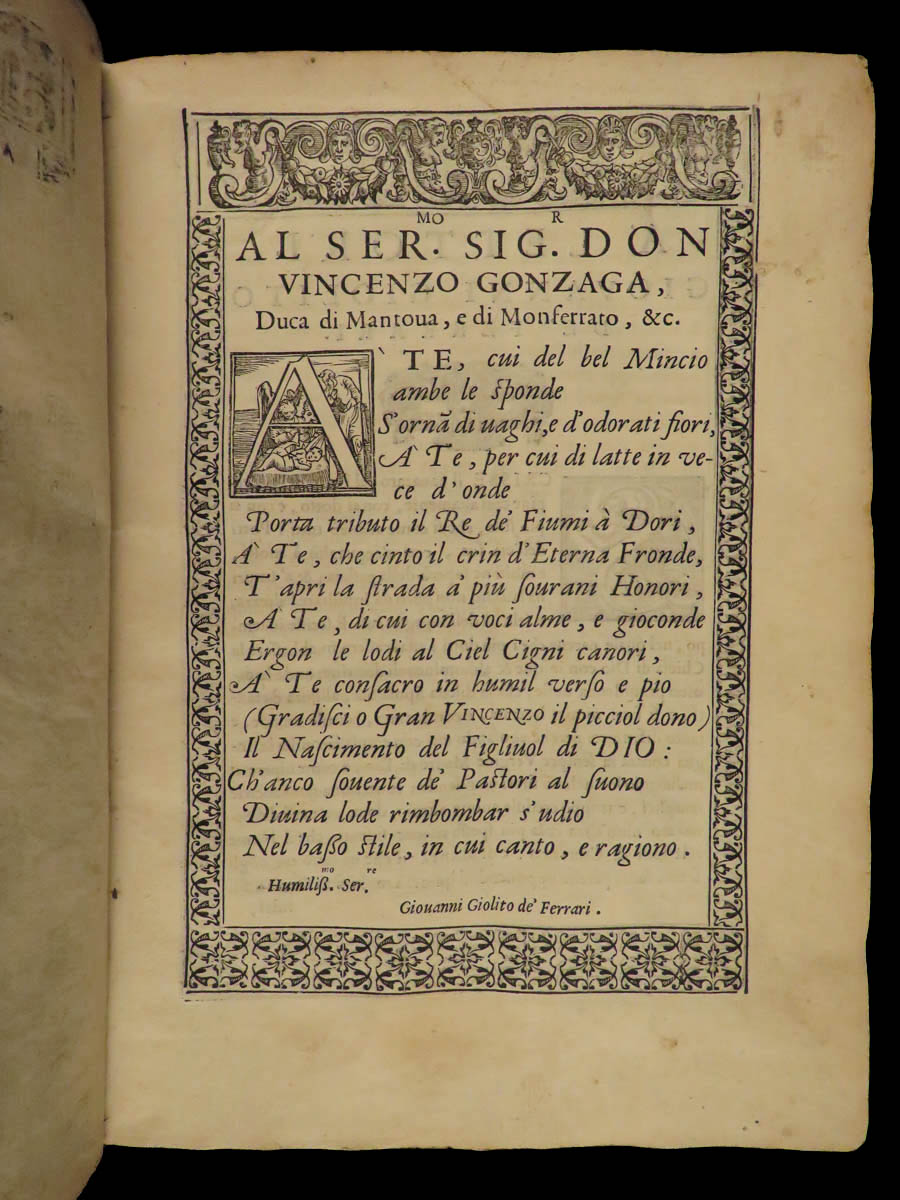 MO R
AL SER. SIG. DON
VINCENZO GONZAGA,
Duca di Mantoua, e di Monferrato, &c.
À TE, cui del bel Mincio
ambe le sponde
S'ornã di uaghi, e d'odorati fiori,
À Te, per cui di latte in ve-
ce d'onde
Porta tributo il Re de' Fiumi à Dori,
À Te, che cinto il crin d'Eterna Fronde,
T'apri la ſtrada a' più ſourani Honori,
À Te, di cui con voci alme, e gioconde
Ergon le lodi al Ciel Cigni canori,
À Te conſacro in humil verſo e pio
(Gradiſci o Gran VINCENZO il picciol dono)
Il Naſcimento del Figliuol di DIO:
Ch'anco ſouente de' Paſtori al ſuono
Diuina lode rimbombar s'udio
Nel baſſo ſtile, in cui canto, e ragiono.
mo re
Humiliſſ. Ser.
Giouanni Giolito de' Ferrari.